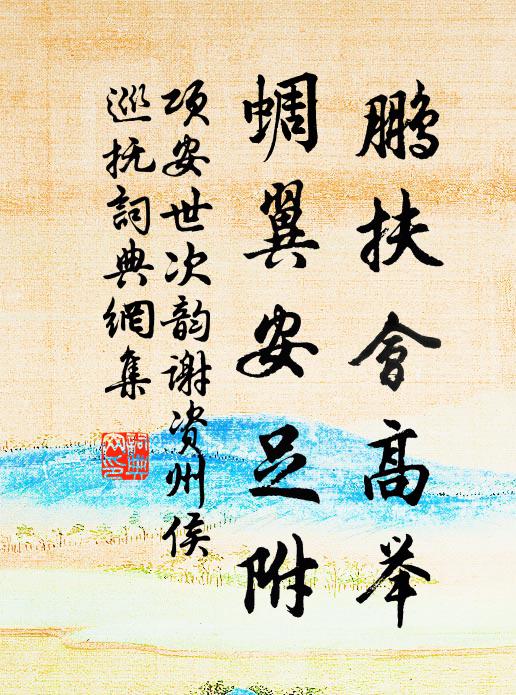 鹏扶會高举
蜩翼安足附
项安世次韵谢资州侯
巡抚詞典網集